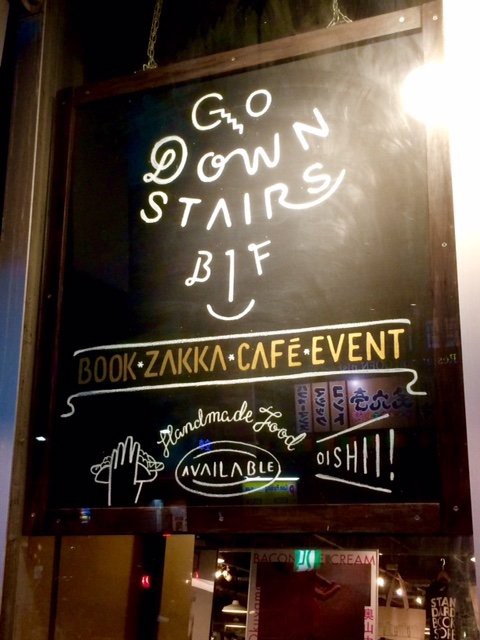 GO
DOWN
STAIRS
B1F
BOOK*ZAKKA*CAFÉ*EVENT
Handmade Food
AVAILABLE
OISHII!
BACON ICE CREAM
STAN
DARD
BOOK